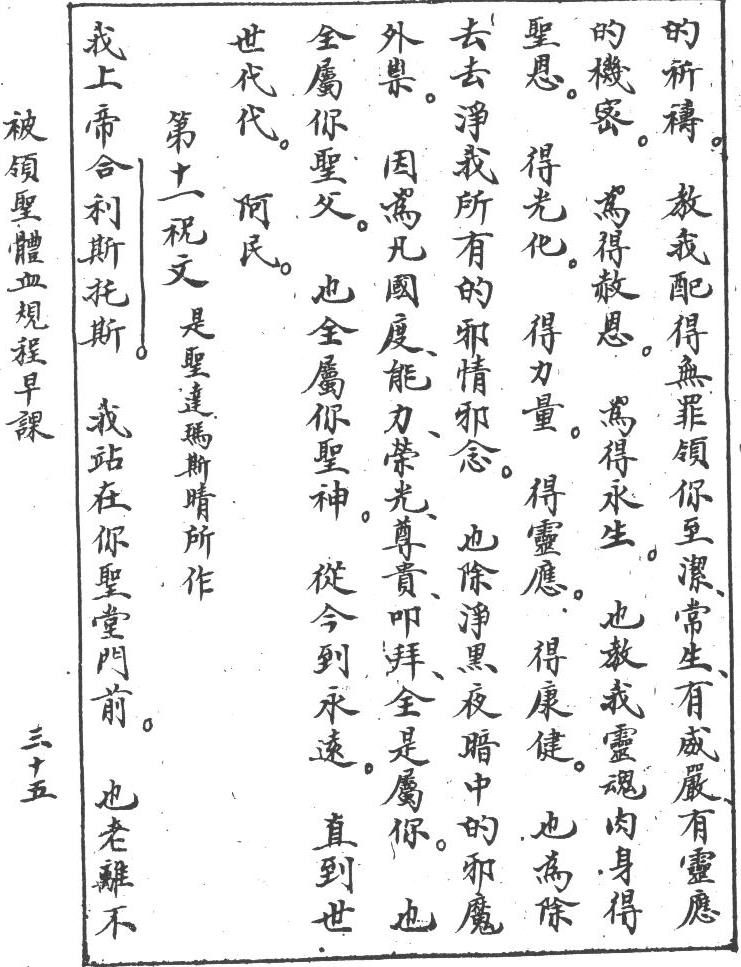 的祈禱。 教我配得無罪領你至潔、常生、有威嚴、有靈應
的機密。 為得赦恩。 為得永生。 也教我靈魂肉身得
聖恩。 得光化。 得力量。 得靈應。 得康健。 也為除
去去淨我所有的邪情邪念。 也除淨黑夜暗中的邪魔
外祟。 因為凡國度、能力、榮光、尊貴、叩拜、全是屬你。 也
全屬你聖父。 也全屬你聖神。 從今到永遠。 直到世
世代代。 阿民。
第十一祝文 是聖達瑪斯晴所作
我上帝合利斯托斯。 我站在你聖堂門前。 也老離不
被領聖體血規程早課
三十五